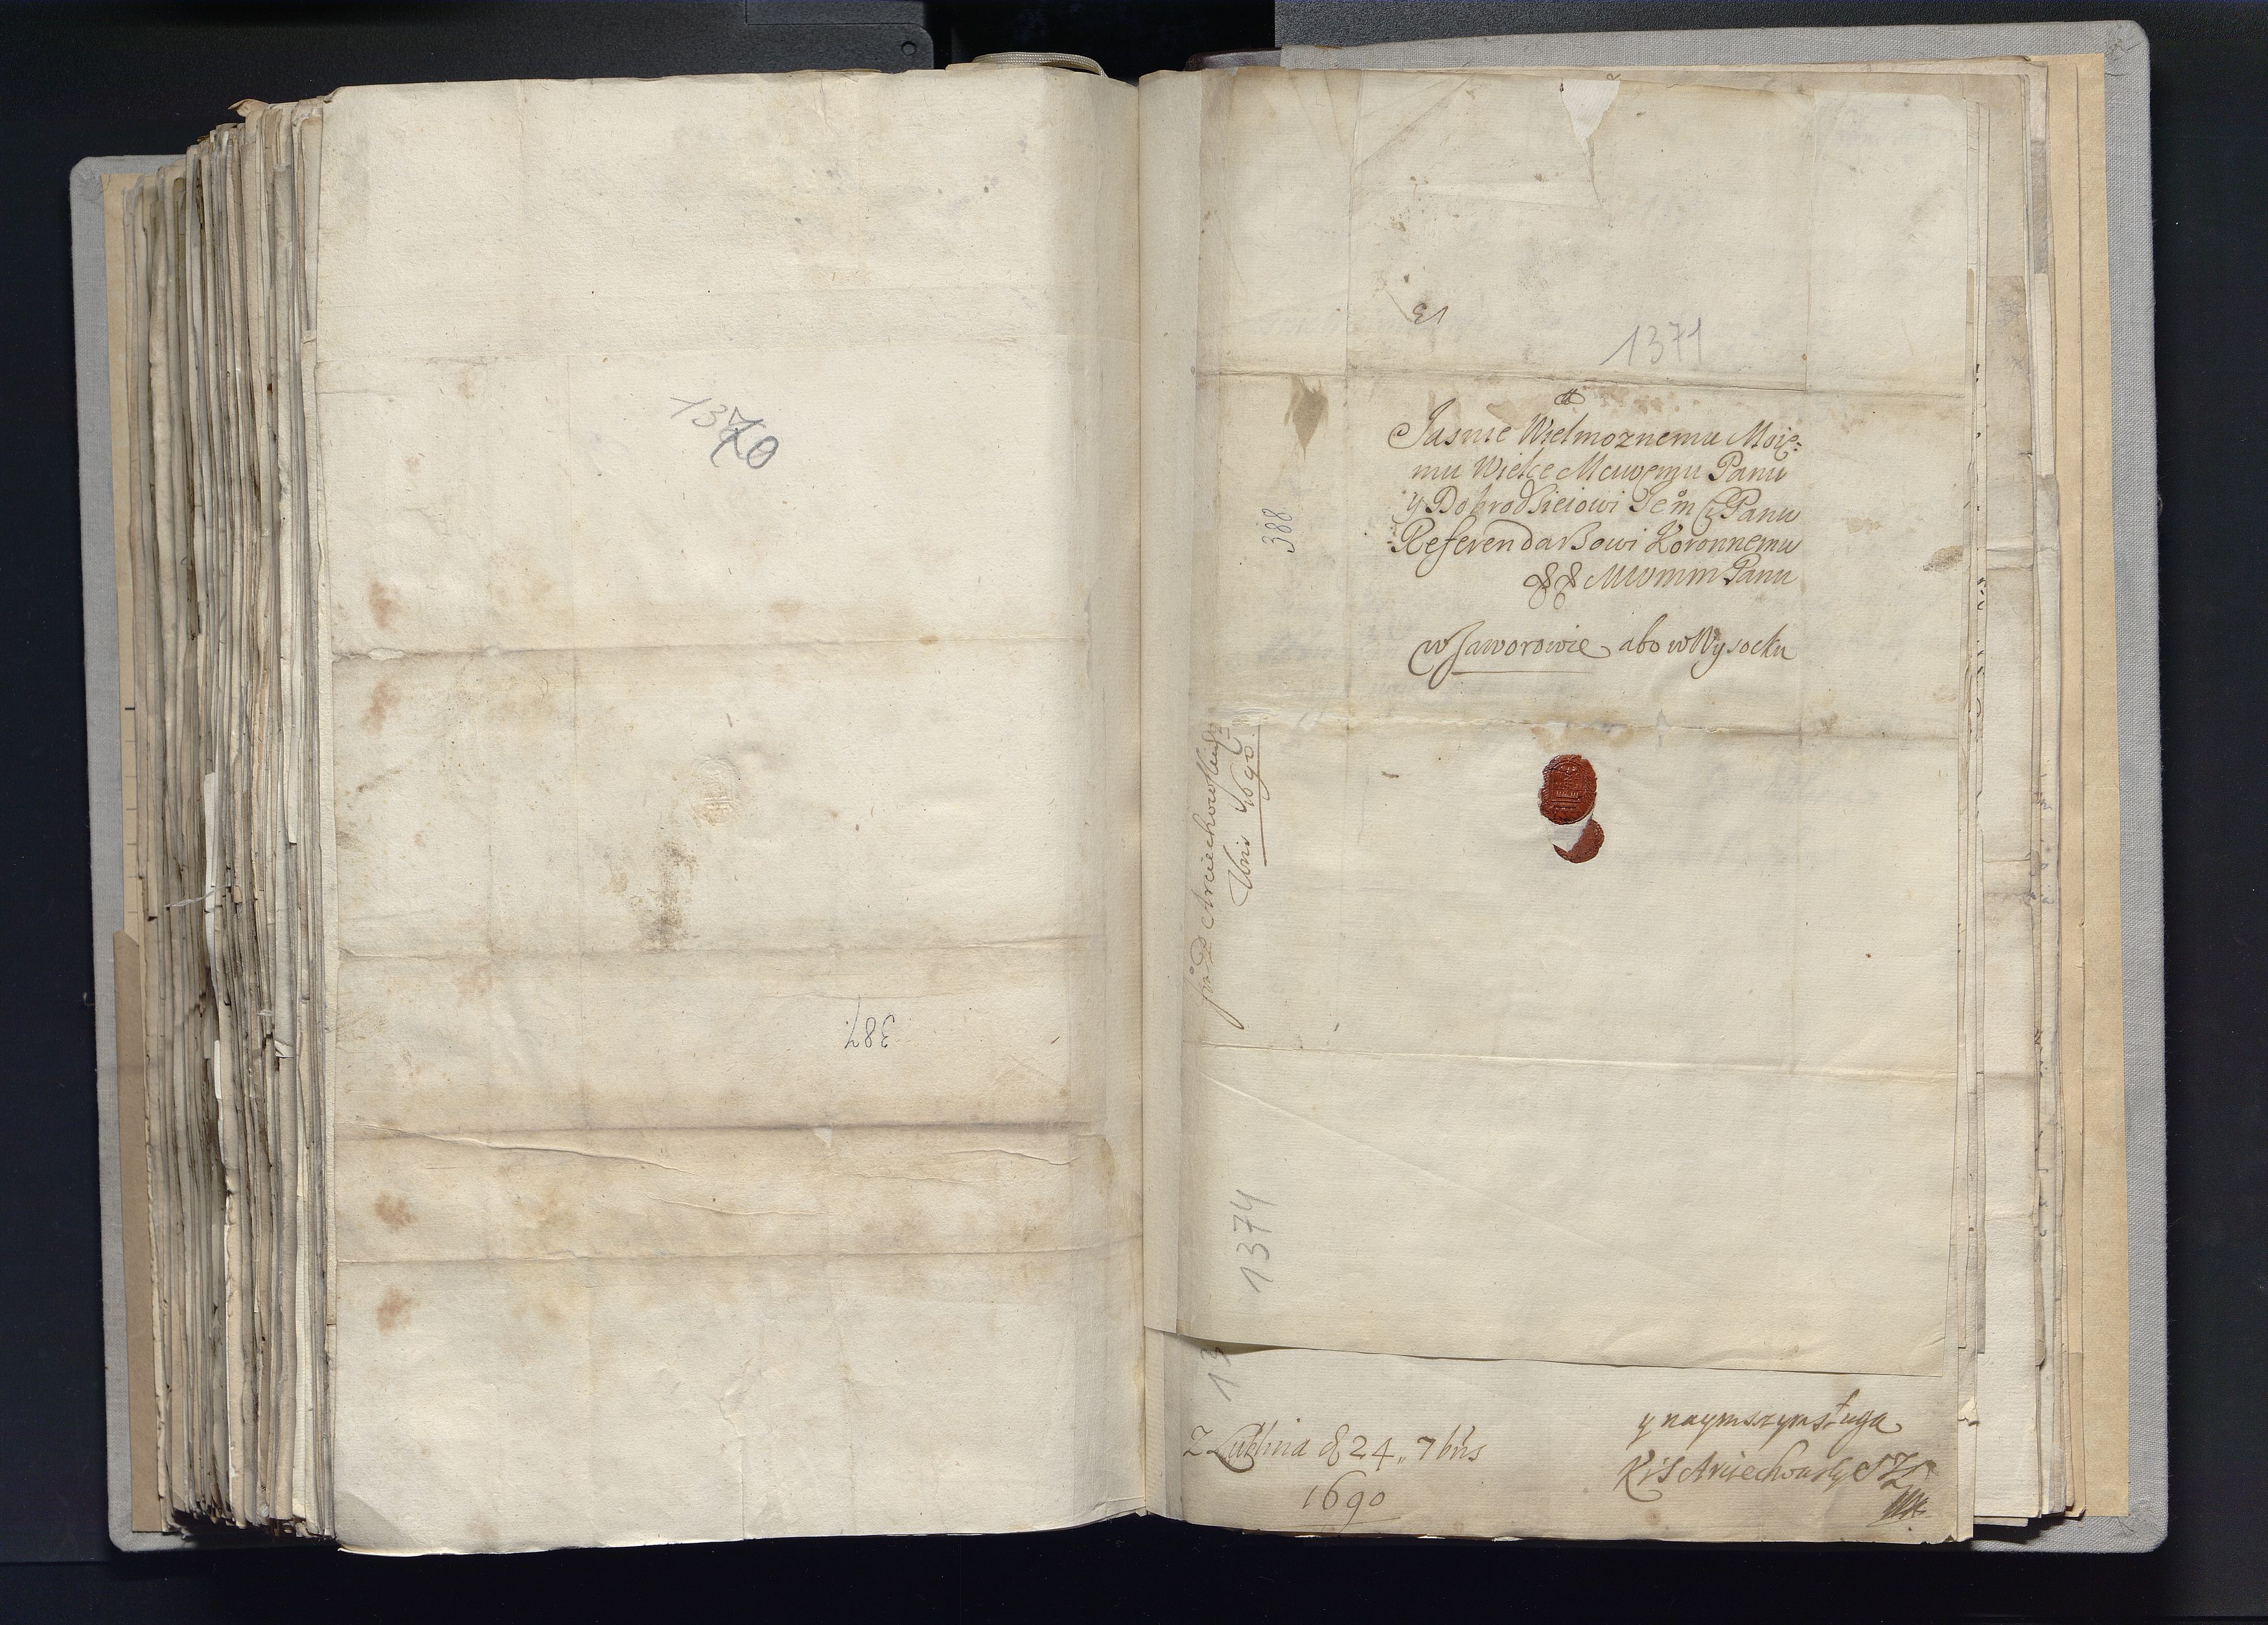 1370
387
13
1371
Jasnie Wielmoznemu Moie:
mu Wielce Mcuwemu Panu
y Dobrodsieiowi Jem Panu
Referendarsowi Koronnemu
&& Mwmm Panu
w Jaworowie abo w Wysocku
388
Arciechowskie
1690
1374
13
Z Lublina d 24 „ 7bris
1690
y naymszym sługa
Arciechowsky